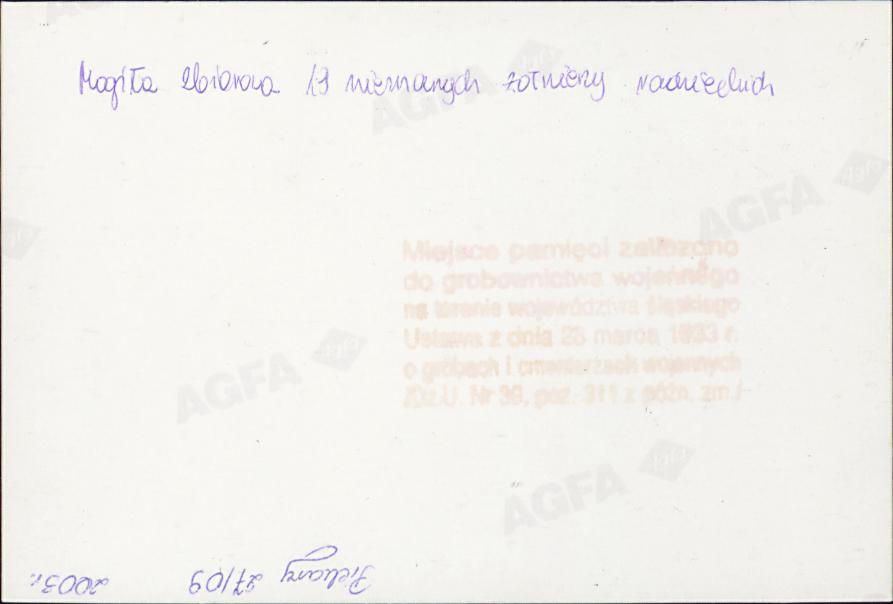 Mogiła zbiorowa 19 nieznanych żołnierzy radzieckich
Miejsce pamięci zaliczono
do grobownictwa wojennego
na terenie województwa śląskiego
Ustawa z dnia 28 marca 1933 r.
o grobach i cmentarzach wojennych
/Dz.U. Nr 39, poz. 311 z późn. zm./
AGFA
AGFA
AGFA
AGFA
Pielgrzymy 27/09 2003r.